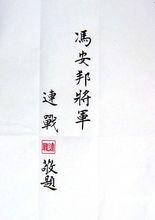 馮安邦將軍
連戰
敬題